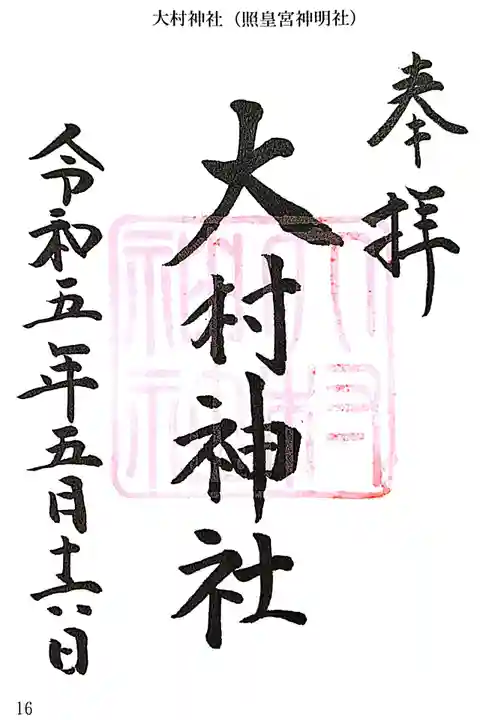 大村神社（照皇宮神明社）
奉拝
大村神社
令和五年五月十六日
大村
神社
16